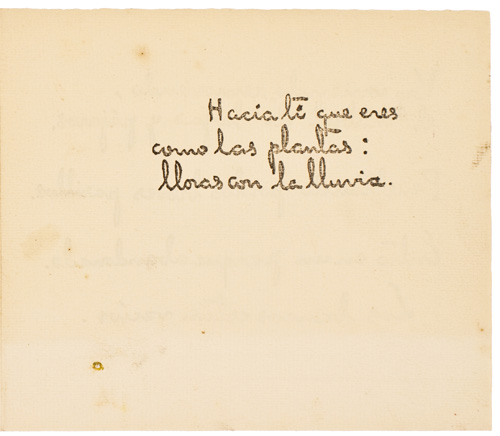 Hacia tí que eres
como las plantas:
lloras con la lluvia.